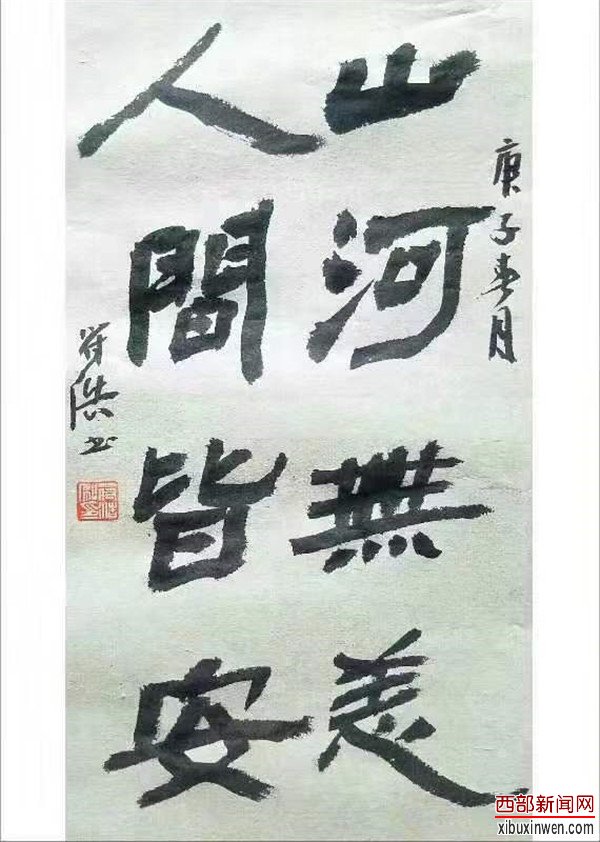 庚子春月
山河無恙
人間皆安
守浩书
西部新闻网
xibuxinwen.com